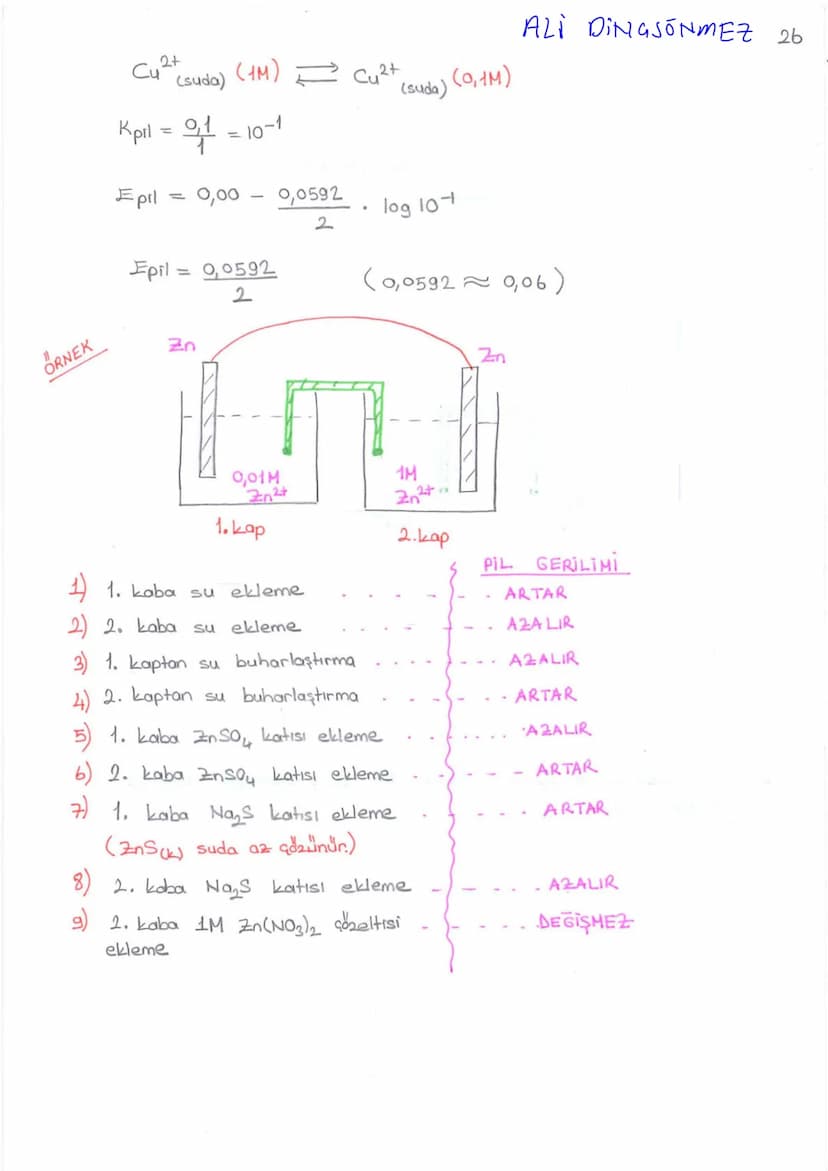 ALİ DİNÇSÖNMEZ 26
Cu²⁺(suda) (1M) ⇌ Cu²⁺(suda) (0,1M)
Kpil = 0,1/1 = 10⁻¹
Epil = 0,00 − 0,0592/2 . log 10⁻¹
Epil = 0,0592/2 (0,0592 ≈ 0,06)
ÖRNEK
Zn Zn
0,01M Zn²⁺
1M Zn²⁺
1. kap 2. kap
PİL GERİLİMİ
1) 1. kaba su ekleme . . . . - - . ARTAR
2) 2. kaba su ekleme . . . . - - - . AZALIR
3) 1. kaptan su buharlaştırma . . . . - . . . AZALIR
4) 2. kaptan su buharlaştırma . . . - - . . ARTAR
5) 1. kaba ZnSO₄ katısı ekleme . . . . . . AZALIR
6) 2. kaba ZnSO₄ katısı ekleme . . - - - ARTAR
7) 1. kaba Na₂S katısı ekleme . - - - . ARTAR
(ZnS(k) suda az çözünür.)
8) 2. kaba Na₂S katısı ekleme - - . . . AZALIR
9) 2. kaba 1M Zn(NO₃)₂ çözeltisi - - - . . . DEĞİŞMEZ
ekleme